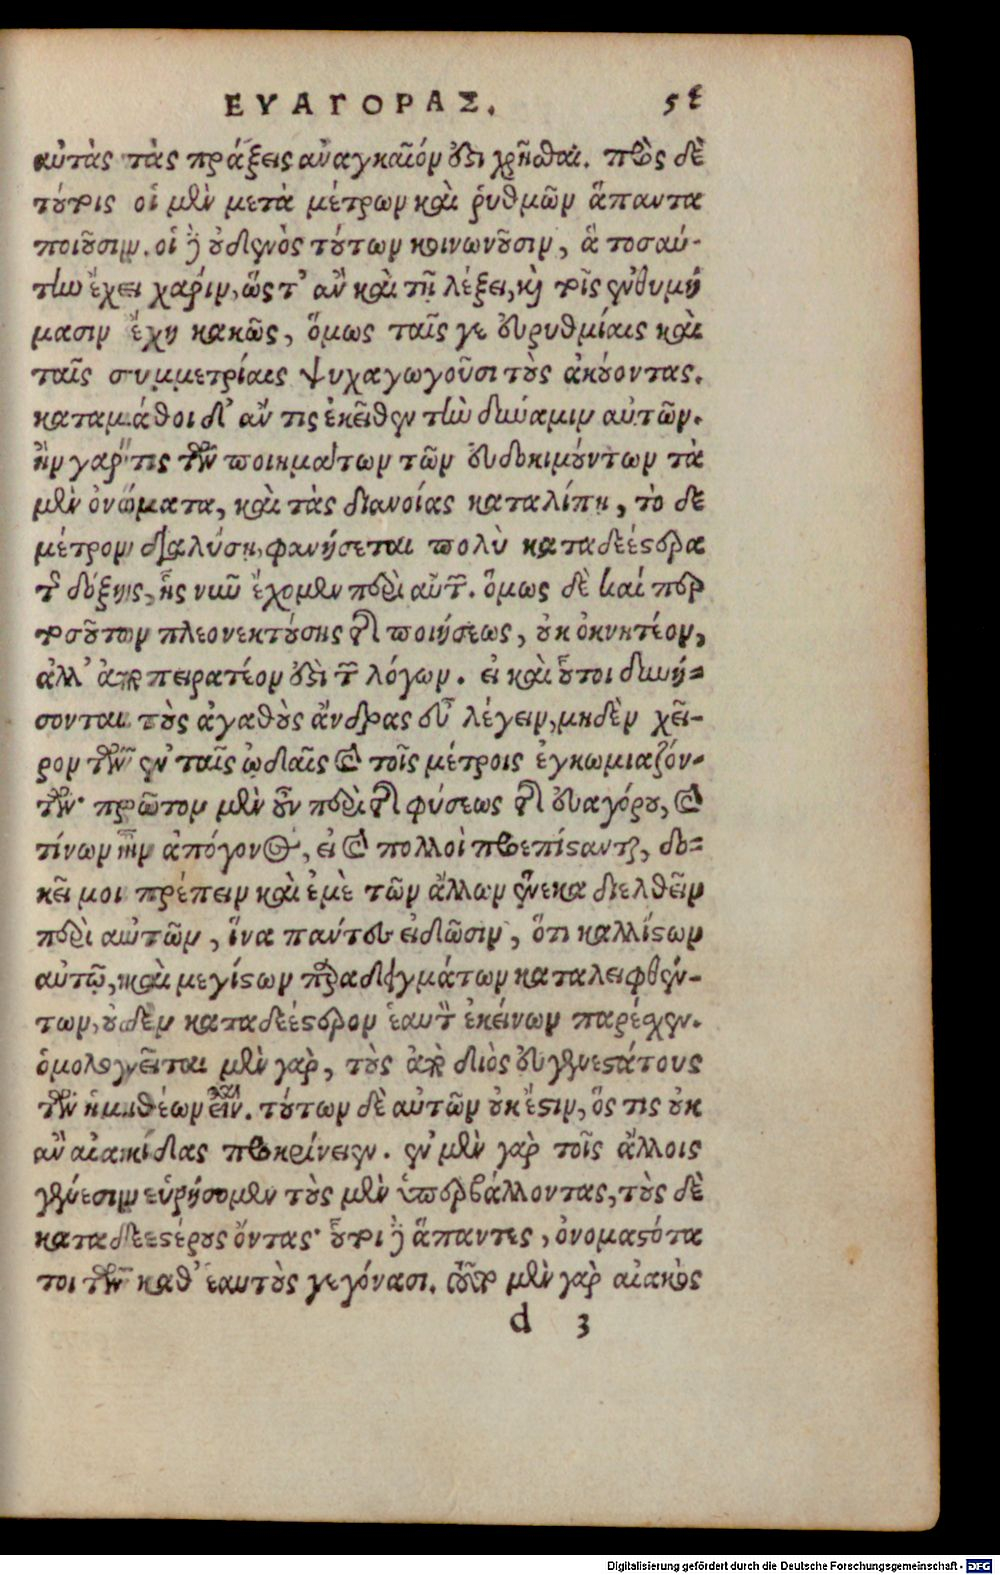 ΕΥΑΓΟΡΑΣ. 5ε
αὐτὰς τὰς πράξεις ἀναγκαῖόν ὅτι χρῆσθαι. πρὸς δὲ
τούτοις οἱ μὲν μετὰ μέτρων καὶ ῥυθμῶν ἅπαντα
ποιοῦσιν. οἱ δὲ οὐδενὸς τούτων κοινωνοῦσιν, ἃ τοσαύ-
την ἔχει χάριν, ὥς τ' ἂν καὶ τῇ λέξει, καὶ τοῖς ἐνθυμή
μασιν ἔχῃ κακῶς, ὅμως ταῖς γε εὐρυθμίαις καὶ
ταῖς συμμετρίαις ψυχαγωγοῦσι τοὺς ἀκούοντας.
καταμάθοι δ' ἄν τις ἐκεῖθεν τὴν δύναμιν αὐτῶν.
ἢν γάρ τις τῶν ποιημάτων τῶν εὐδοκιμούντων τὰ
μὲν ὀνόματα, καὶ τὰς διανοίας καταλίπῃ, τὸ δὲ
μέτρον διαλύσῃ, φανήσεται πολὺ καταδεέστερα
τῆς δόξης, ἧς νῦν ἔχομεν περὶ αὐτῶν. ὅμως δὲ καί περ
τοσοῦτον πλεονεκτούσης τῆς ποιήσεως, οὐκ ὀκνητέον,
ἀλλ' ἀποπειρατέον ἐστὶ τῶν λόγων. εἰ καὶ οὗτοι δυνή-
σονται τοὺς ἀγαθοὺς ἄνδρας εὖ λέγειν, μηδὲν χεῖ-
ρον τῶν ἐν ταῖς ᾠδαῖς καὶ τοῖς μέτροις ἐγκωμιαζόν-
των· πρῶτον μὲν οὖν περὶ τῆς φύσεως τῆς εὐαγόρου, καὶ
τίνων ἦν ἀπόγονος, εἰ καὶ πολλοὶ προεπίστανται, δο-
κεῖ μοι πρέπειν καὶ ἐμὲ τῶν ἄλλων ἕνεκα διελθεῖν
περὶ αὐτῶν, ἵνα πάντες εἰδῶσιν, ὅτι καλλίστων
αὐτῷ, καὶ μεγίστων παραδειγμάτων καταλειφθέν-
των, οὐδὲν καταδεέστερον ἑαυτὸν ἐκείνων παρέσχεν.
ὁμολογεῖται μὲν γὰρ, τοὺς ἀπὸ διὸς εὐγενεστάτους
τῶν ἡμιθέων εἶναι. τούτων δὲ αὐτῶν οὐκ ἔστιν, ὅς τις οὐκ
ἂν αἰακίδας προκρίνειεν. ἐν μὲν γὰρ τοῖς ἄλλοις
γένεσιν εὑρήσομεν τοὺς μὲν ὑπερβάλλοντας, τοὺς δὲ
καταδεεστέρους ὄντας· οὗτοι δὲ ἅπαντες, ὀνομαστότα
τοι τῶν καθ' ἑαυτοὺς γεγόνασι. τοῦτο μὲν γὰρ αἰακὸς
d 3
Digitalisierung gefördert durch die Deutsche Forschungsgemeinschaft - DFG